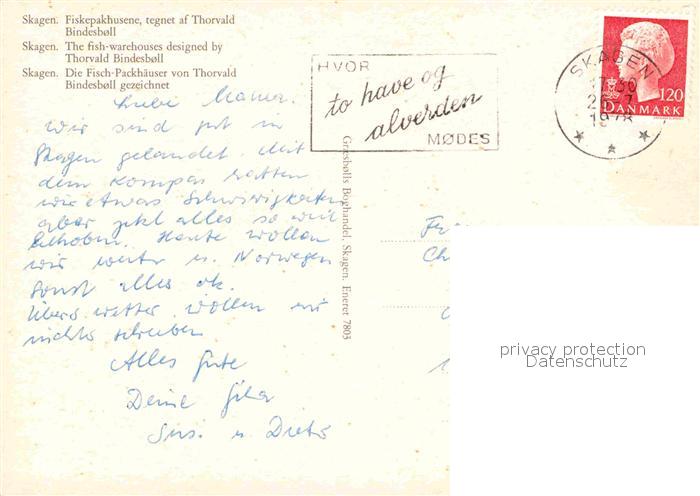 Skagen. Fiskepakhusene, tegnet af Thorvald
Bindesbøll
Skagen. The fish-warehouses designed by
Thorvald Bindesbøll
Skagen. Die Fisch-Packhäuser von Thorvald
Bindesbøll gezeichnet
HVOR
to have og
alverden
MØDES
SKAGEN
17-30
1978
120
DANMARK
Liebe Mama.
Wir sind gut in
Skagen gelandet. Mit
dem Kompas hatten
wir etwas Schwirigkeiten
aber jetzt alles so weit
behoben. Heute wollen
wir weiter n. Norwegen
Sonst alles ok.
Übers wetter wollen wir
nichts schreiben
Alles Gute
Deine
Sus. u Dieter
Græsbølls Boghandel, Skagen. Eneret 7803
privacy protection
Datenschutz